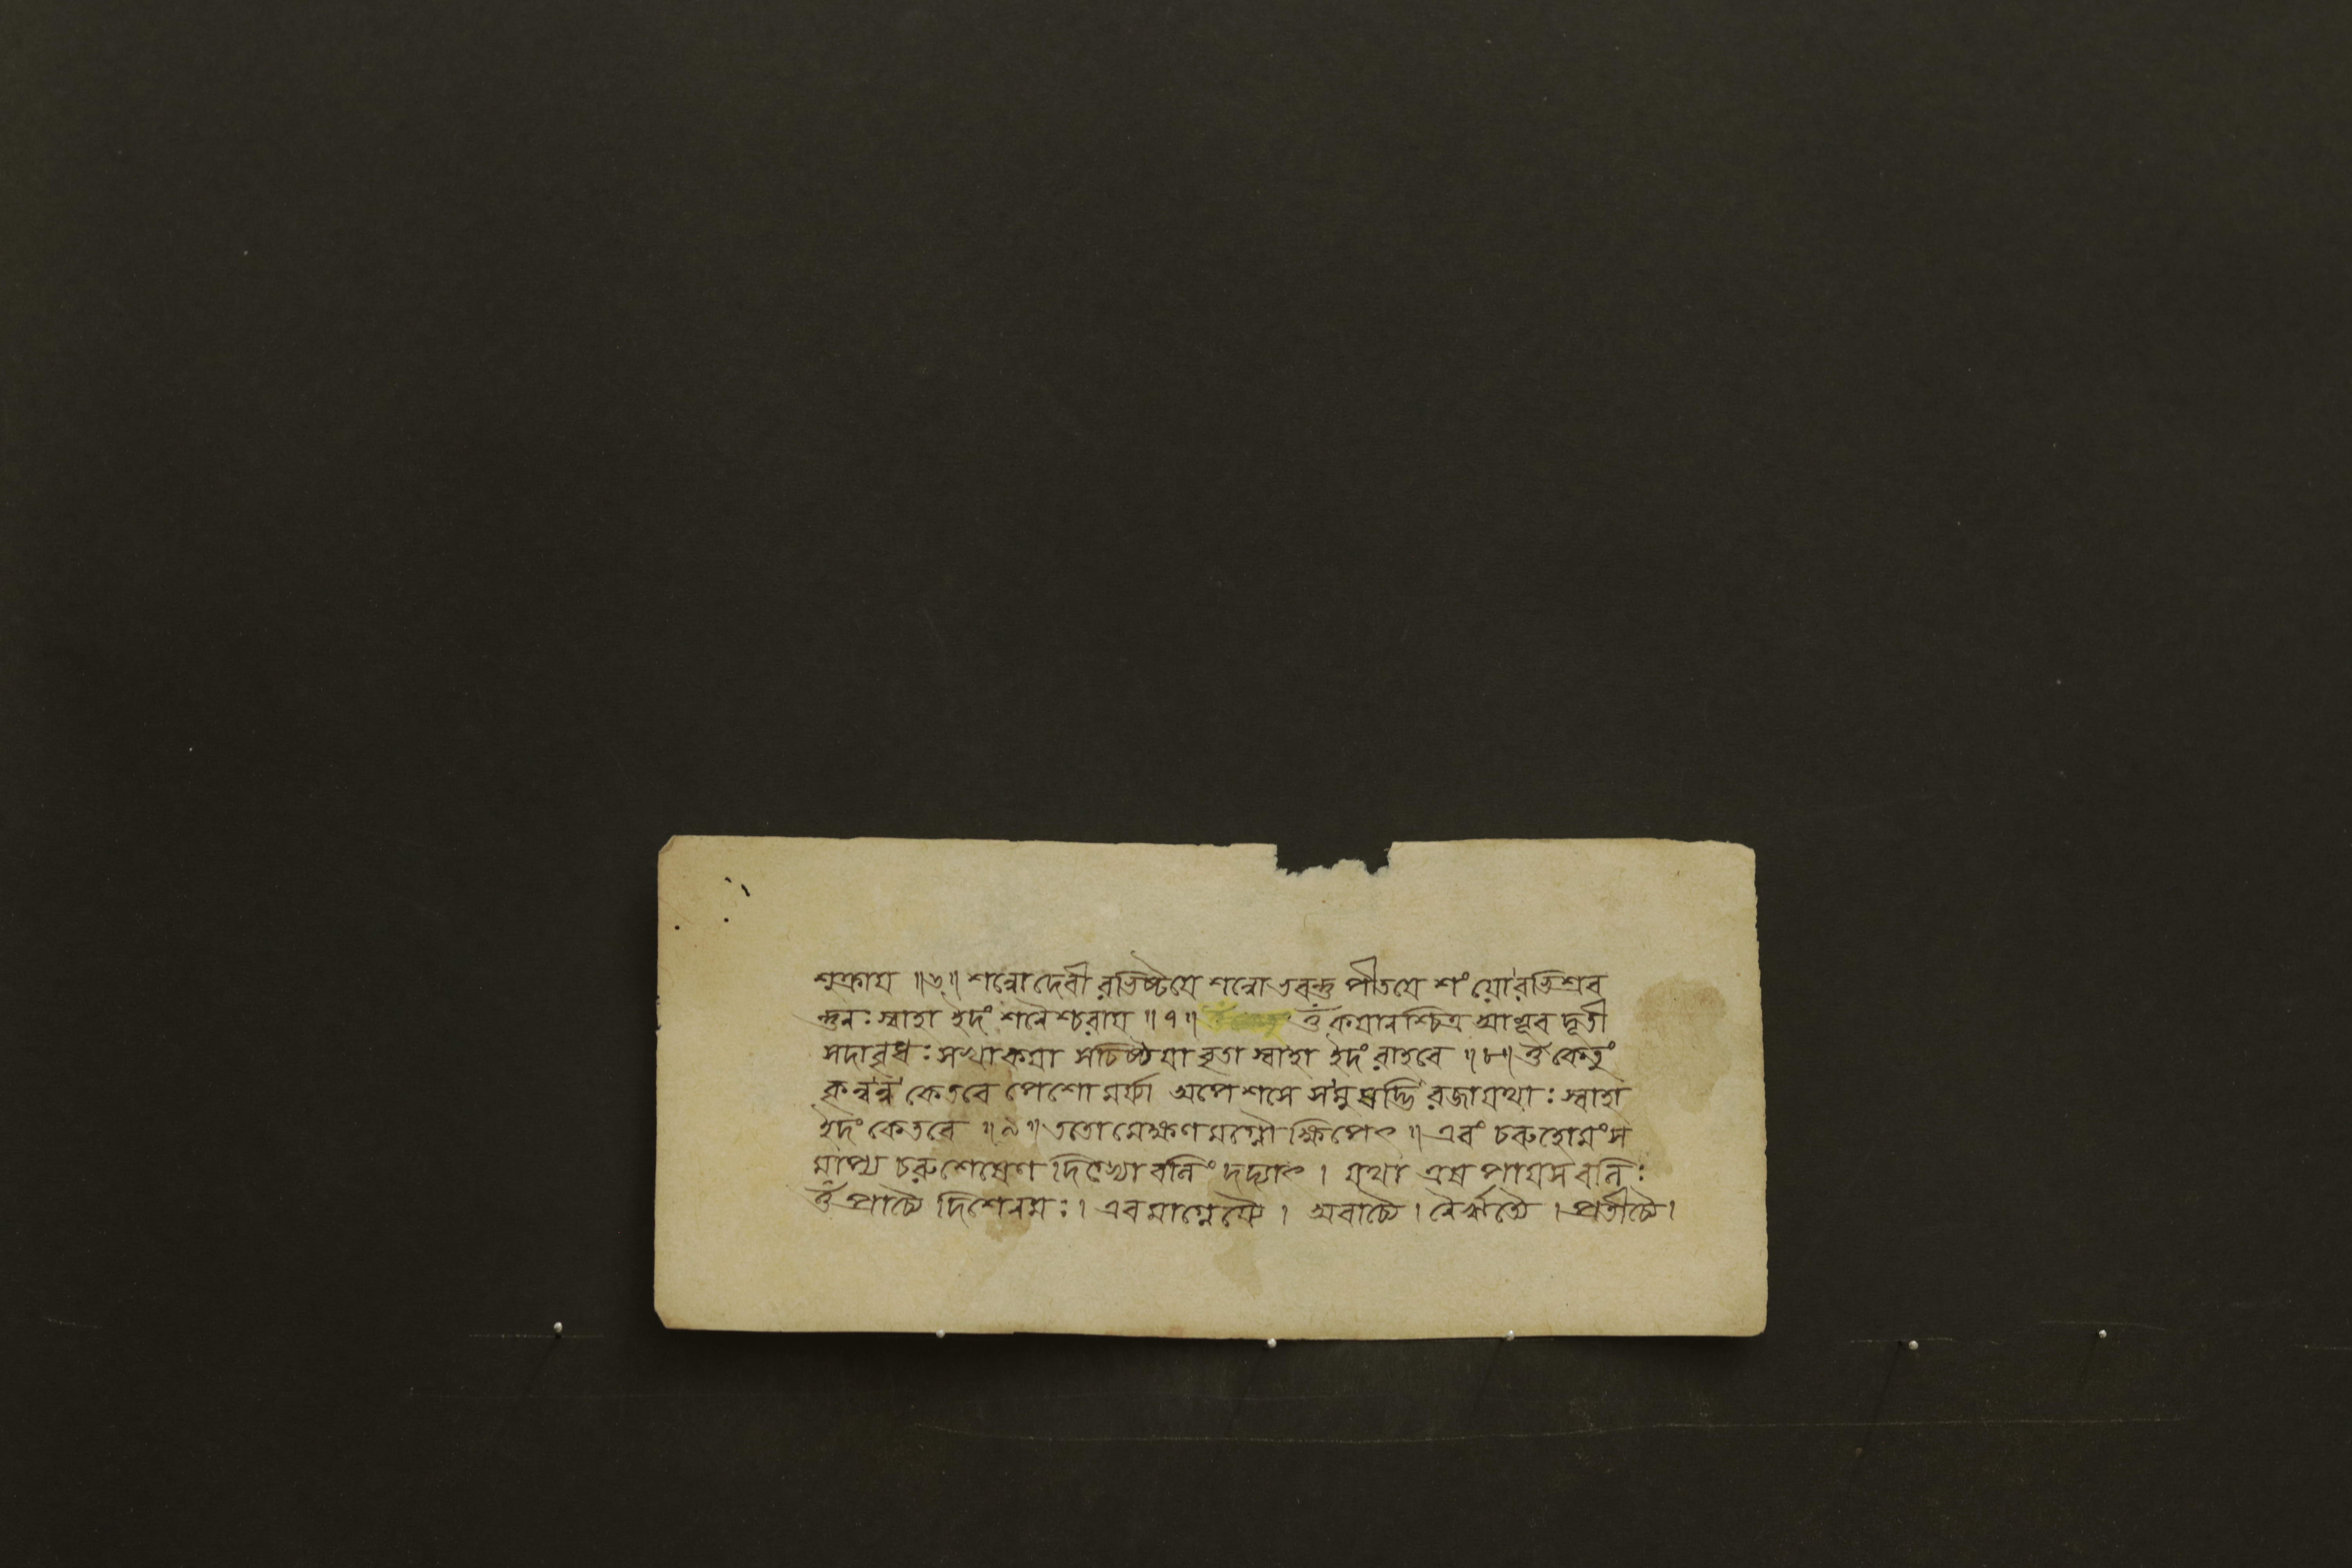 শুক্রায় ॥৬॥ শন্নো দেবী রভিষ্টয়ে শন্নো ভবন্তু পীতয়ে শং য়োরভিশ্রব
ন্তুনঃ স্বাহা ইদং শনৈশ্চরায় ॥৭॥ ওঁ কয়ানশ্চিত্র আভূব দূতী
সদাবৃধঃ সখা কয়া সচিষ্ঠয়া বৃতা স্বাহা ইদং রাহবে ॥৮॥ ওঁ কেতুং
কৃন্বন্ন কেতবে পেশো মর্য্যা অপেশসে সমুষদ্ভি রজায়থাঃ স্বাহা
ইদং কেতবে ॥৯॥ ততো মেক্ষণমগ্নৌ ক্ষিপেৎ ॥ এবং চরুহোমং স
মাপ্য চরুশেষেণ দিগ্ভ্যো বলিং দদ্যাৎ । যথা এষ পায়স বলিঃ
ওঁ প্রাচ্যৈ দিশে নমঃ । এবমাগ্নেয়্যৈ । অবাচ্যৈ । নৈর্ঋত্যৈ । প্রতীচ্যৈ ।